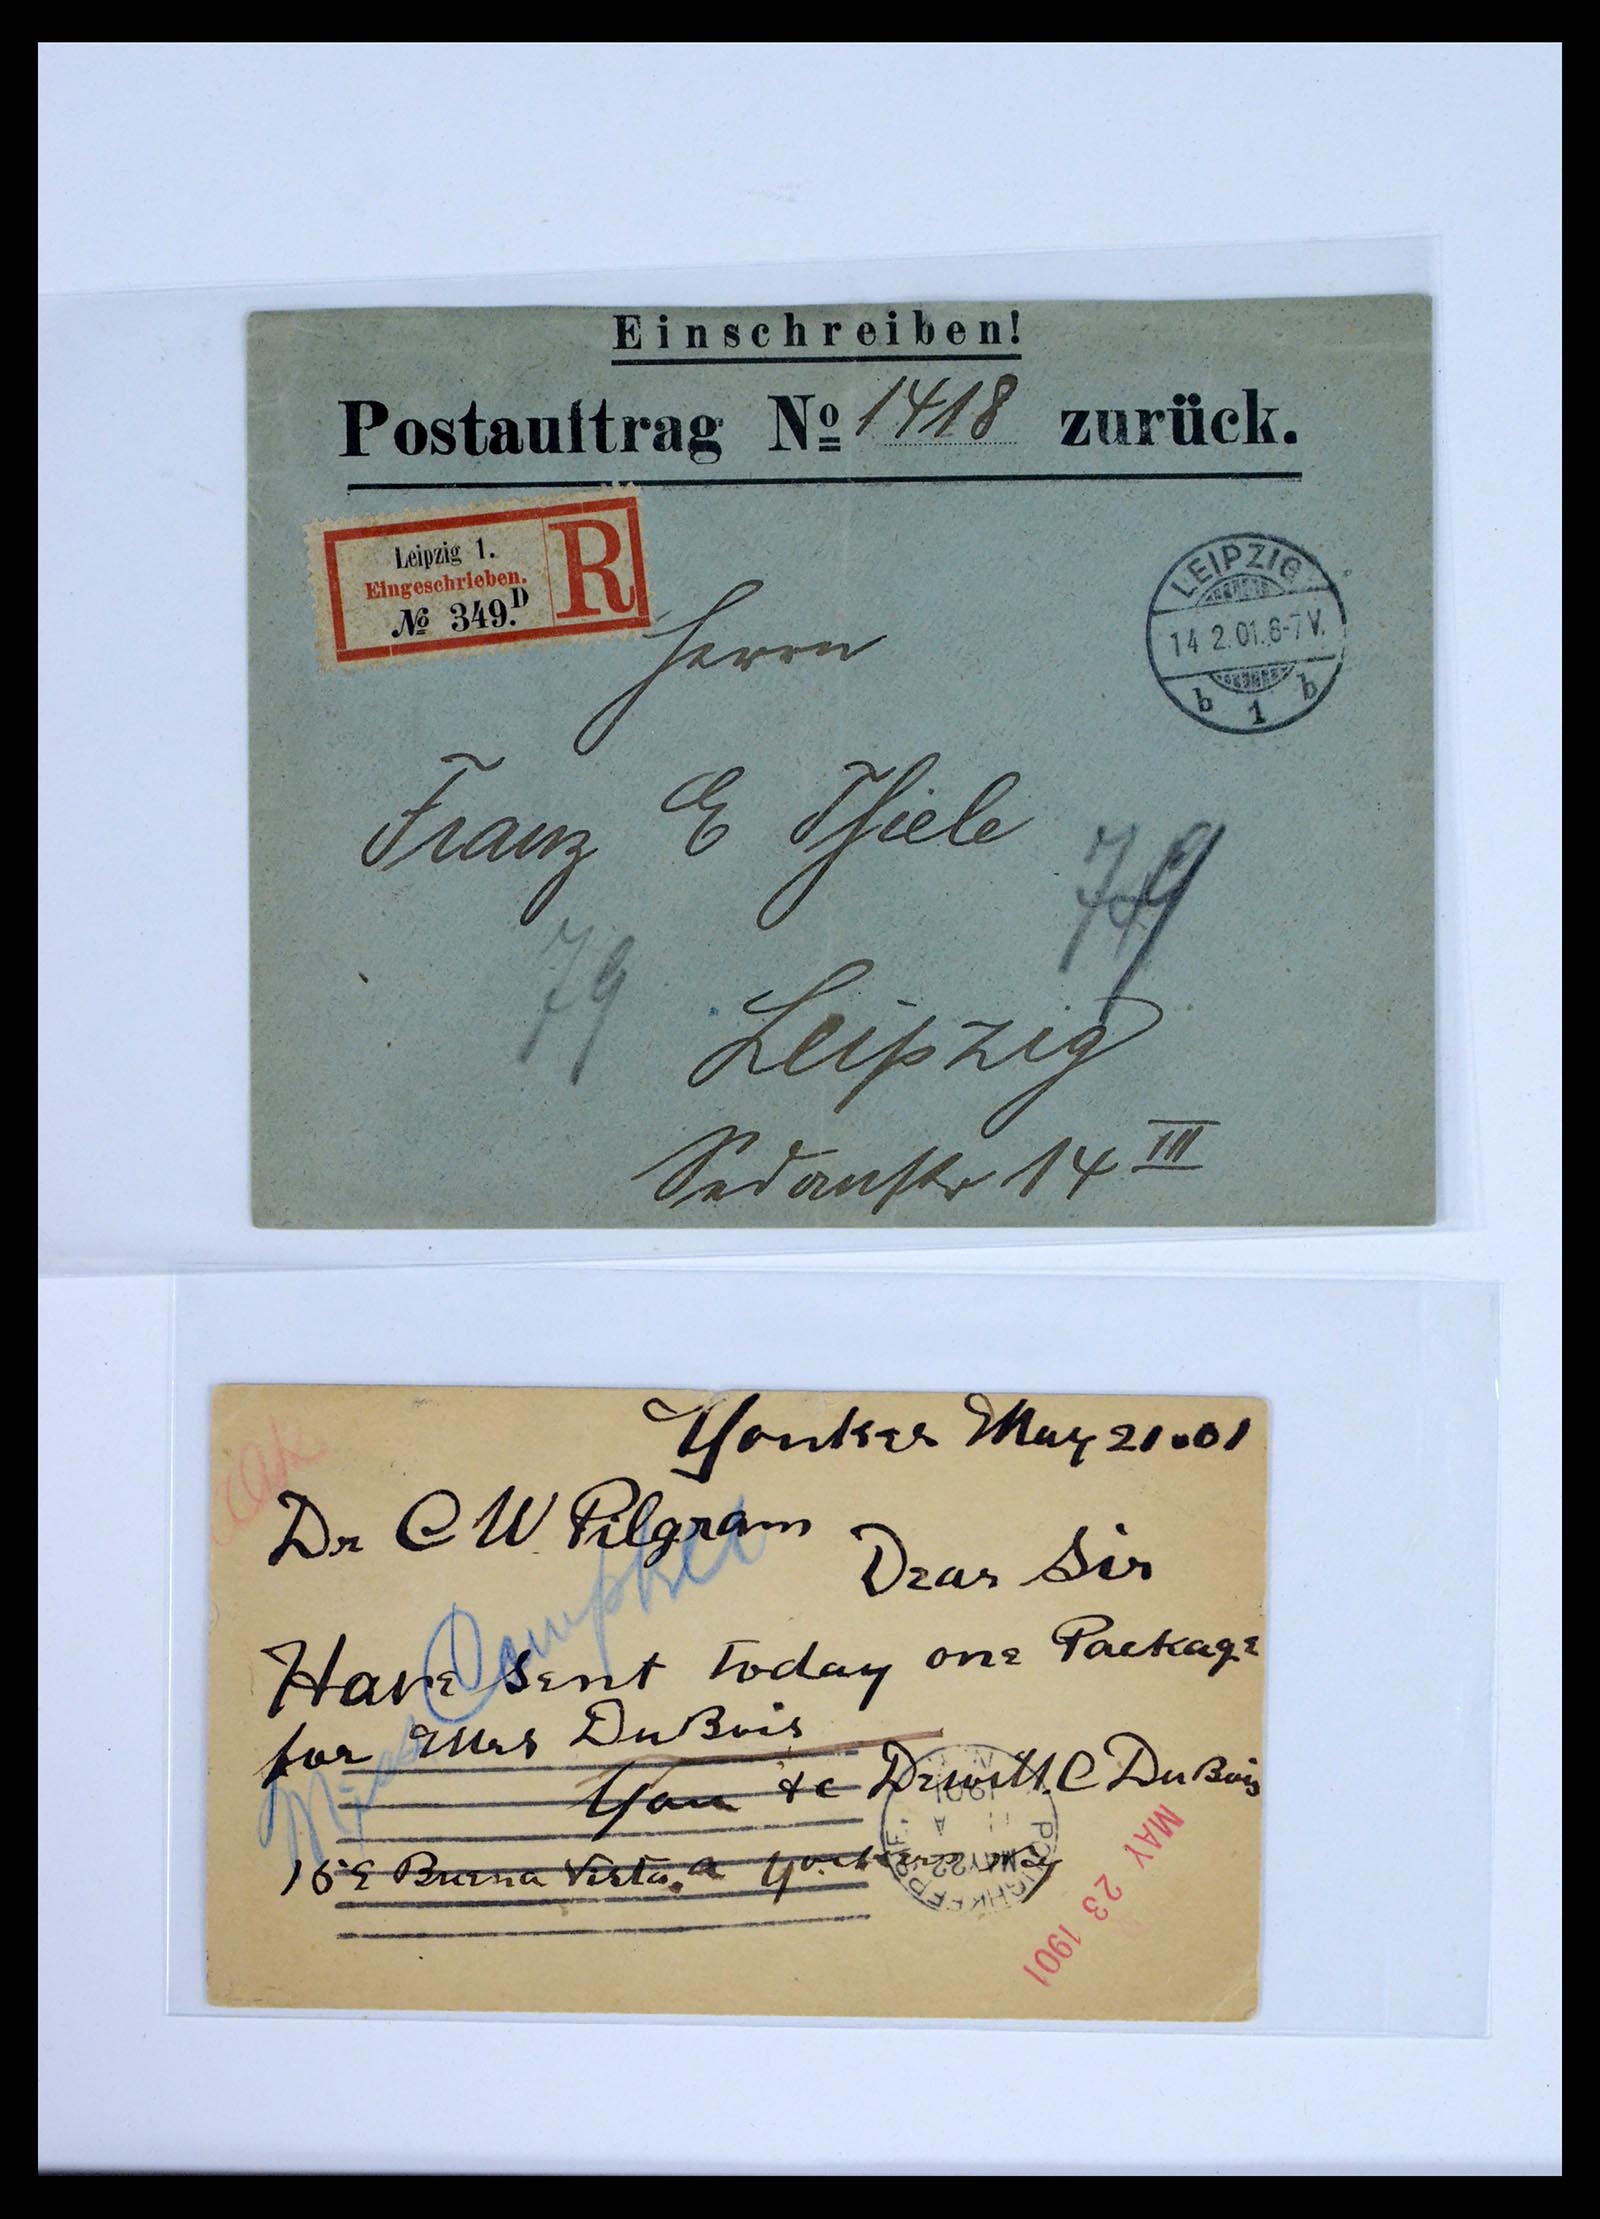 Einschreiben!
Postauftrag No 1418 zurück.
Leipzig 1.
Eingeschrieben.
No 349.D
R
LEIPZIG
14 2.01.6-7 V.
b 1 b
Herrn
Franz E Thiele
79
79
Leipzig
Sedanstr 14 III
Yonkers May 21.01
Dr C W Pilgram
Dear Sir
Have sent today one Package
for Mrs DuBois
Miss Campbell
You &c Dewitt C DuBois
15 E Buena Vista. a Yonkers NY
POUGHKEEPSIE,
MAY 22
A
1901
N.Y.
MAY 23 1901